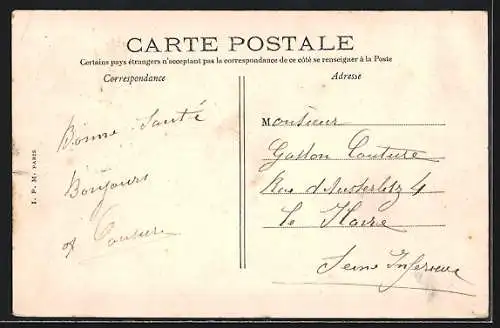 CARTE POSTALE
Certains pays étrangers n'acceptant pas la correspondance de ce côté se renseigner à la Poste
Correspondance
Adresse
Bonne Santé
Bonjours
Couture
I. P. M. PARIS
Monsieur
Gaston Couture
Rue d'Austerlitz 4
le Havre
Seine Inferieure